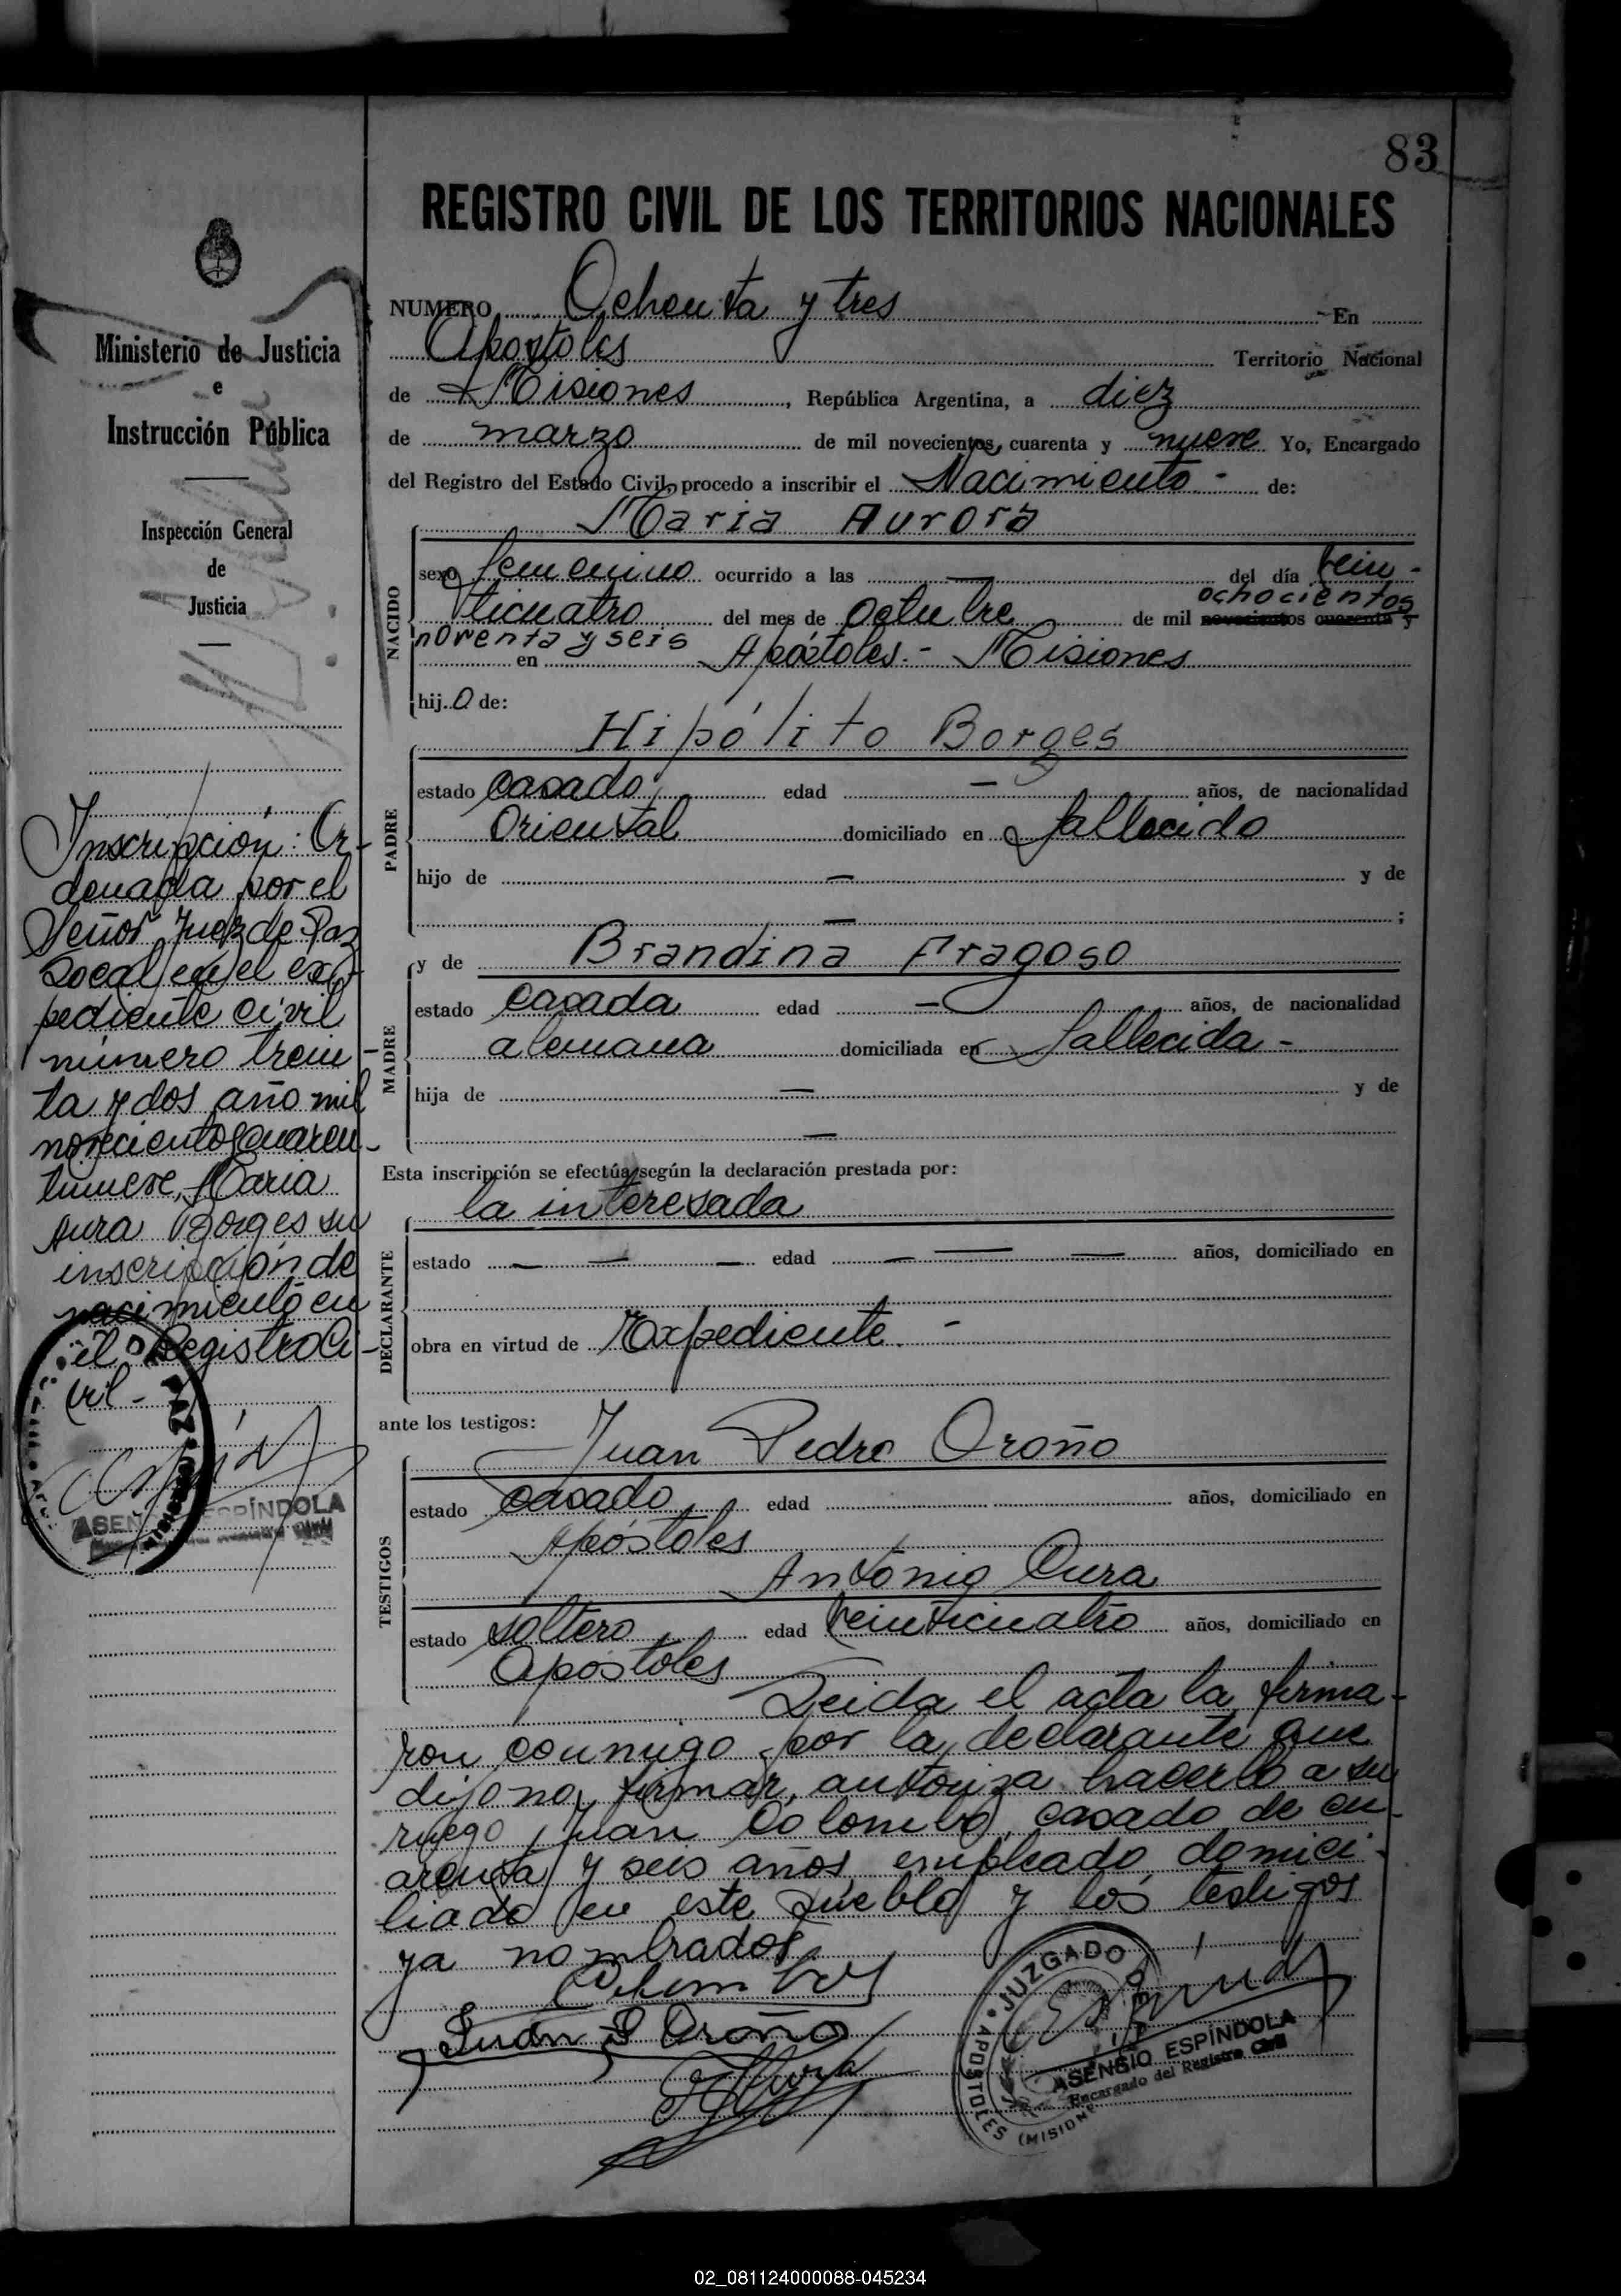 83
REGISTRO CIVIL DE LOS TERRITORIOS NACIONALES
NUMERO Ochenta y tres En
Apostoles Territorio Nacional
de Misiones, República Argentina, a diez
de marzo de mil novecientos cuarenta y nueve Yo, Encargado
del Registro del Estado Civil, procedo a inscribir el Nacimiento - de:
Maria Aurora
NACIDO
sexo femenino ocurrido a las — del día vein-
ochocientos
ticuatro del mes de octubre de mil novecientos cuarenta y
noventa y seis en Apóstoles - Misiones
hija de:
Hipólito Borges
PADRE
estado casado edad — años, de nacionalidad
Oriental domiciliado en fallecido
hijo de — y de
— ;
y de Brandina Fragoso
MADRE
estado casada edad — años, de nacionalidad
alemana domiciliada en fallecida -
hija de — y de
—
Esta inscripción se efectúa según la declaración prestada por:
la interesada
DECLARANTE
estado — — — edad — — — años, domiciliado en
obra en virtud de Expediente. -
ante los testigos:
Juan Pedro Oroño
TESTIGOS
estado casado edad años, domiciliado en
Apóstoles
Antonio Cura
estado soltero edad veinticuatro años, domiciliado en
Apóstoles
Leida el acta la firma-
ron conmigo por la declarante que
dijo no firmar, autoriza hacerlo a su
ruego, Juan Colombo, casado de cu-
arenta y seis años, empleado, domici-
liado en este pueblo y los testigos
ya nombrados.
Juan P Oroño
JUZGADO DE
APOSTOLES (MISIONE
ASENSIO ESPÍNDOLA
Encargado del Registro Civil
Ministerio de Justicia
e
Instrucción Pública
Inspección General
de
Justicia
Inscripción: Or-
denada por el
Señor Juez de Paz
Local en el ex-
pediente civil
número trein-
ta y dos año mil
novecientos cuaren-
tinueve, Maria
Aura Borges su
inscripción de
nacimiento en
el Registro Ci-
vil -
ESPÍNDOLA
02_081124000088-045234